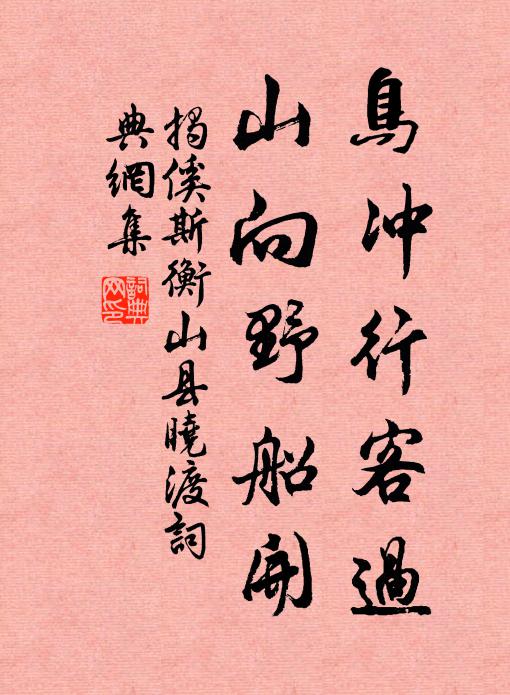 鳥冲行客過
山向野船開
揭傒斯衡山县曉渡詞
典網集
詞典
网印